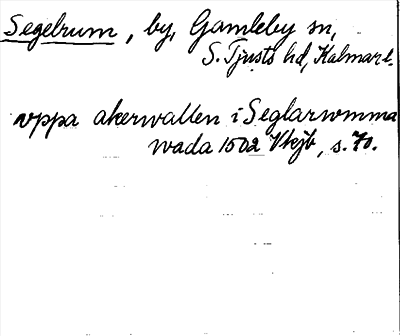 Segelrum, by, Gamleby sn,
S. Tjusts hd, Kalmar l.
vppa akerwallen i Seglarwmma
wada 1502 Vtejb, s. 70.